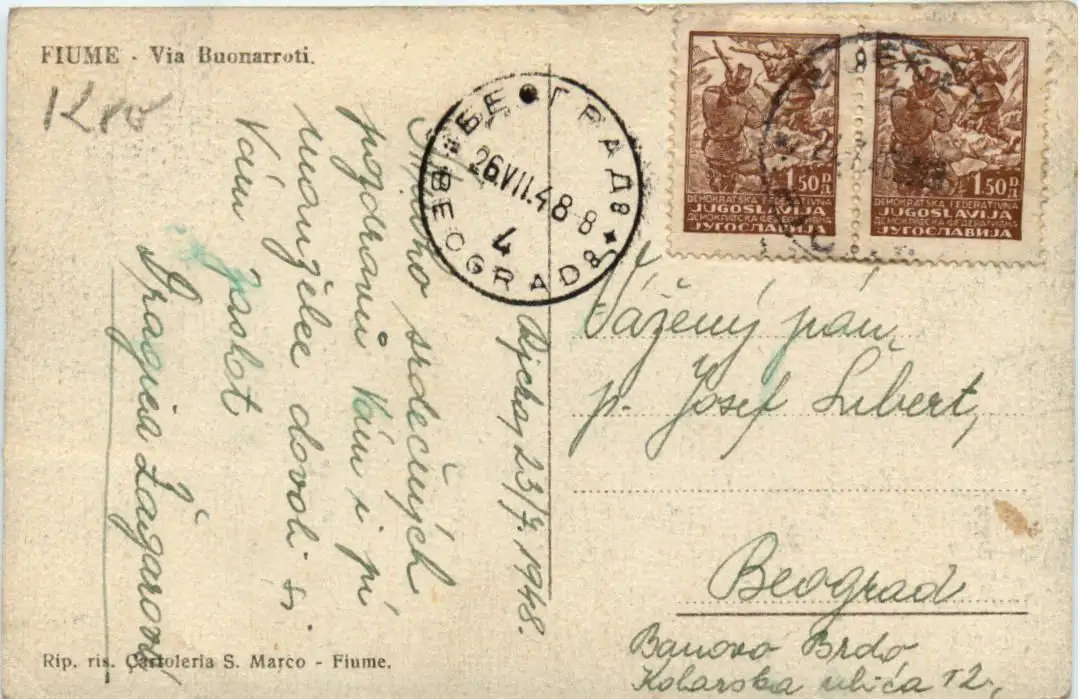 FIUME - Via Buonarroti.
Rijeka, 23/7. 1948.
Mnoho srdečných
pozdravů Vám i pí
manželce dovolí si
Vám poslat
Dragica Žagarová
БЕОГРАД 8
26.VII.48-8
4
BEOGRAD 8
RIJEKA
1.50 D
DEMOKRATSKA FEDERATIVNA
JUGOSLAVIJA
ДЕМОКРАТСКА ФЕДЕРАТИВНА
ЈУГОСЛАВИЈА
1.50 D
DEMOKRATSKA FEDERATIVNA
JUGOSLAVIJA
ДЕМОКРАТСКА ФЕДЕРАТИВНА
ЈУГОСЛАВИЈА
Vážený pán,
p. Josef Libert,
Beograd
Banovo Brdo
Kolarska ulica 12.
Rip. ris. Cartoleria S. Marco - Fiume.